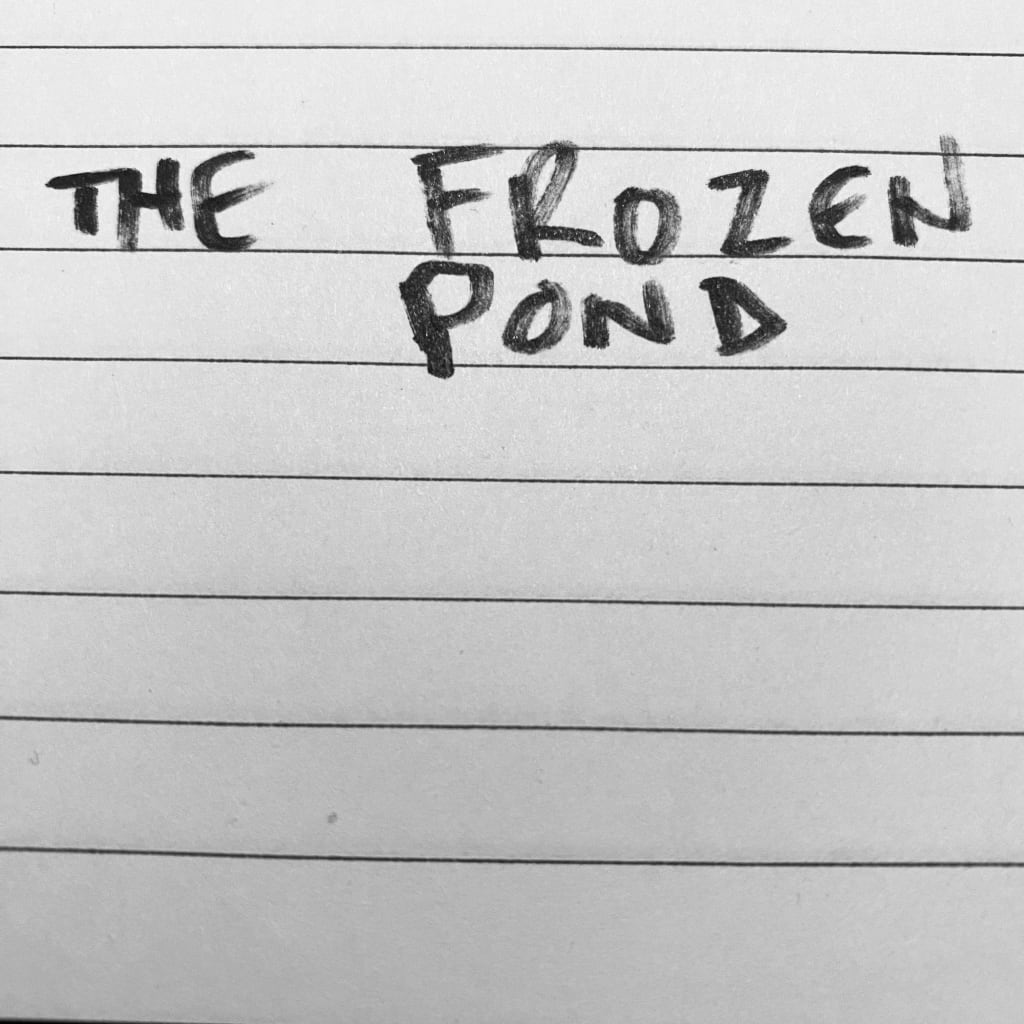 THE FROZEN
POND